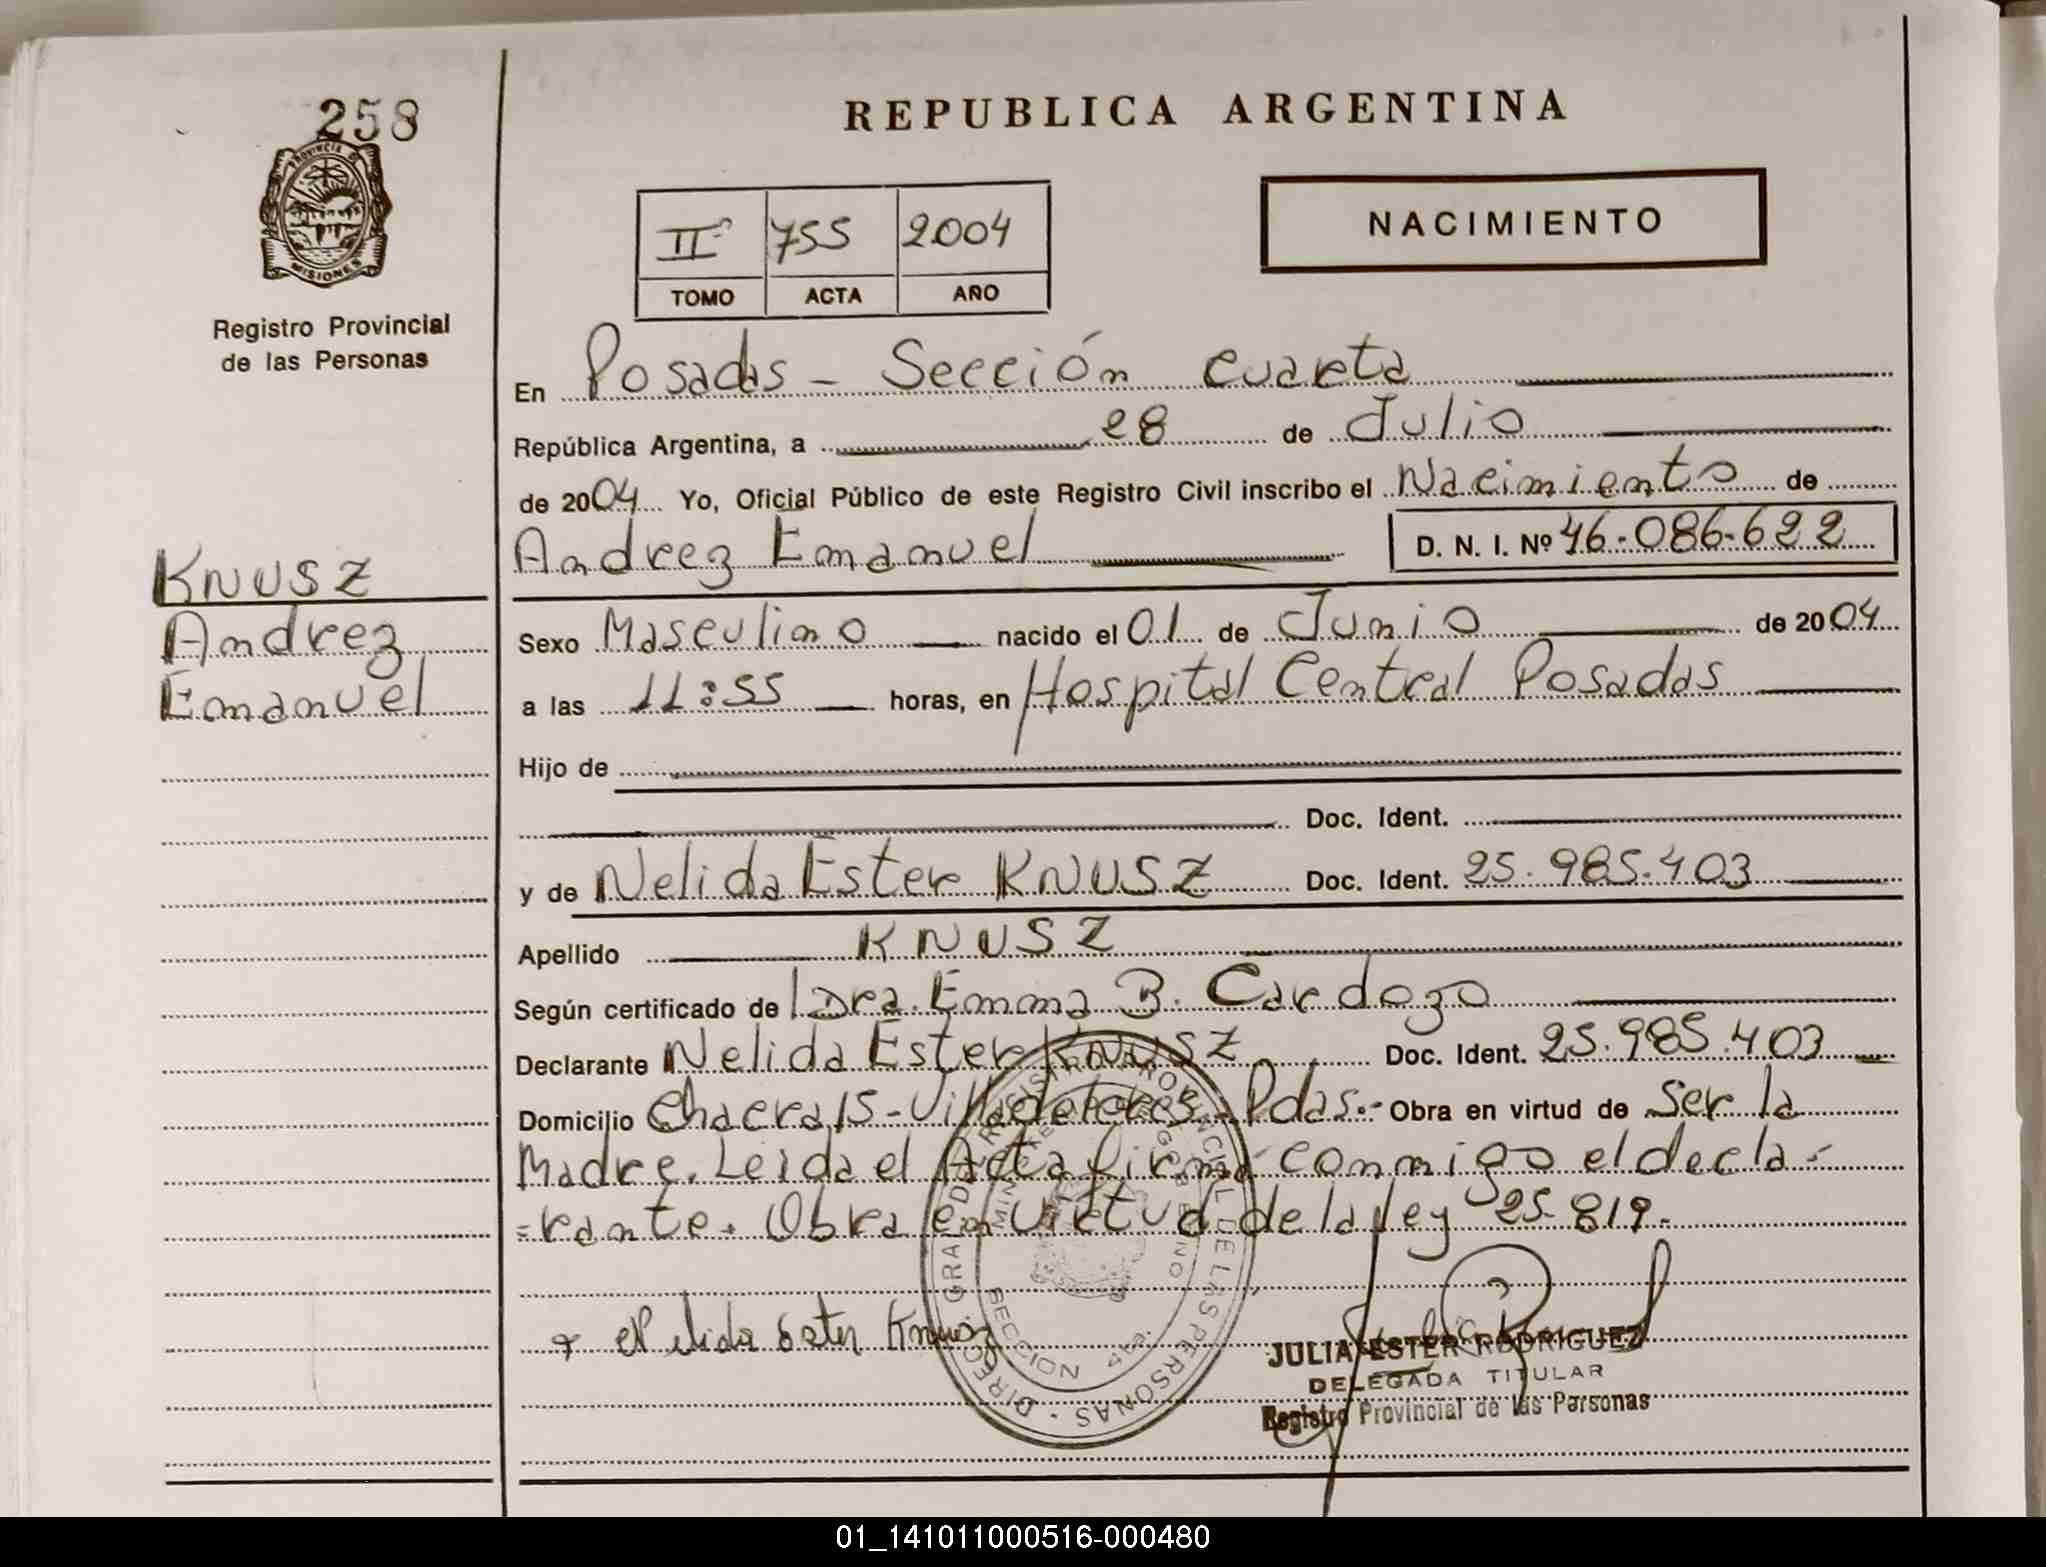 258
PROVINCIA DE
MISIONES
Registro Provincial
de las Personas
KNUSZ
Andrez
Emanuel
REPUBLICA ARGENTINA
IIº 755 2004
TOMO ACTA AÑO
NACIMIENTO
En Posadas - Sección cuarta
República Argentina, a 28 de Julio
de 2004 Yo, Oficial Público de este Registro Civil inscribo el Nacimiento de
Andrez Emanuel D. N. I. Nº 46.086.622
Sexo Masculino nacido el 01 de Junio de 2004
a las 11:55 horas, en Hospital Central Posadas
Hijo de
Doc. Ident.
y de Nelida Ester KNUSZ Doc. Ident. 25.985.403
Apellido KNUSZ
Según certificado de Dra. Emma B. Cardozo
Declarante Nelida Ester KNUSZ Doc. Ident. 25.985.403
Domicilio Chacra 15 - Villa Pdas.- Obra en virtud de Ser la
Madre. Leida el Acta firma conmigo el decla-
=rante. Obra en virtud de la ley 25.819.
Nelida Ester Knusz
JULIA ESTER RODRIGUEZ
DELEGADA TITULAR
Registro Provincial de las Personas
DIRECC. GRAL. DEL REGISTRO PROVINCIAL DE LAS PERSONAS
SECCION 4ta.
01_141011000516-000480